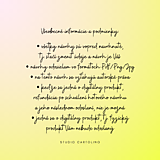 Všeobecné informácie a podmienky:
• všetky návrhy sú vopred navrhnuté,
t.j. stačí zmeniť údaje a návrh je Váš
• návrhy odosielam vo formátoch Pdf/Png/Jpg
• na tento návrh sa vzťahujú autorské práva
• keďže sa jedná o digitálny produkt,
reklamácia po schválení hotového návrhu
a jeho následnom odoslaní, nie je možná
• jedná sa o digitálny produkt, tj. fyzický
produkt Vám nebude odoslaný
STUDIO CARTOLINO